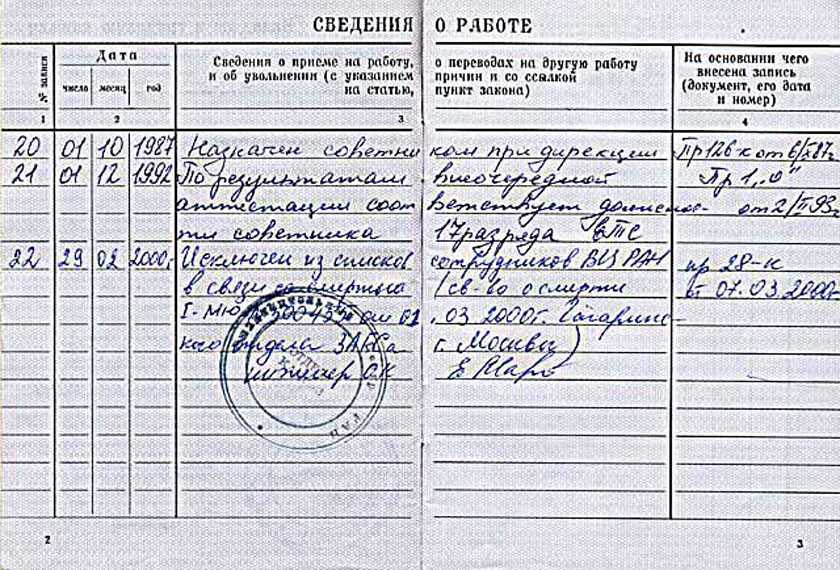 СВЕДЕНИЯ О РАБОТЕ
№ записи
Дата
Сведения о приеме на работу, о переводах на другую работу
и об увольнении (с указанием причин и со ссылкой
на статью, пункт закона)
На основании чего
внесена запись
(документ, его дата
и номер)
число месяц год
1 2 3 4
20 01 10 1987 Назначен советником при дирекции Пр 126 к от 6/X 87г.
21 01 12 1992 По результатам внеочередной Пр 1 „о"
аттестации соответствует должнос- от 2/II 93г.
ти советника 17 разряда ЕТС
22 29 02 2000г. Исключен из списков сотрудников ВЦ РАН пр 28-к
в связи со смертью (св-во о смерти от 07.03.2000г.
I-МЮ 01.03 2000г. Гагаринс-
кого отдела ЗАГСа г. Москвы)
инженер ОК
2 3